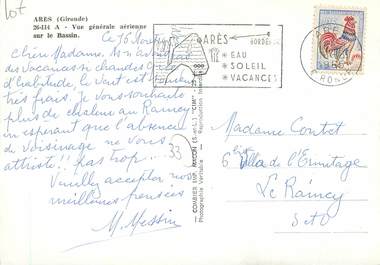 Lot
ARÈS (Gironde)
26-114 A - Vue générale aérienne
sur le Bassin.
Ce 16
Chère Madame,
des vacances si chaudes
d'habitude, le vent est toujours
très frais, je vous souhaite
plus de chaleur au Raincy
en espérant que l'absence
de voisinage ne vous
attriste!! pas trop...
33
Veuillez accepter nos
meilleures pensées
M. Messin
COMBIER IMP. MACON (S.-et-L.) "CIM"
Photographie Véritable - Reproduction Interdite
ARÈS
EAU
SOLEIL
VACANCES
GIRONDE
Madame Contet
6 bis Villa de l'Ermitage
Le Raincy
S et O